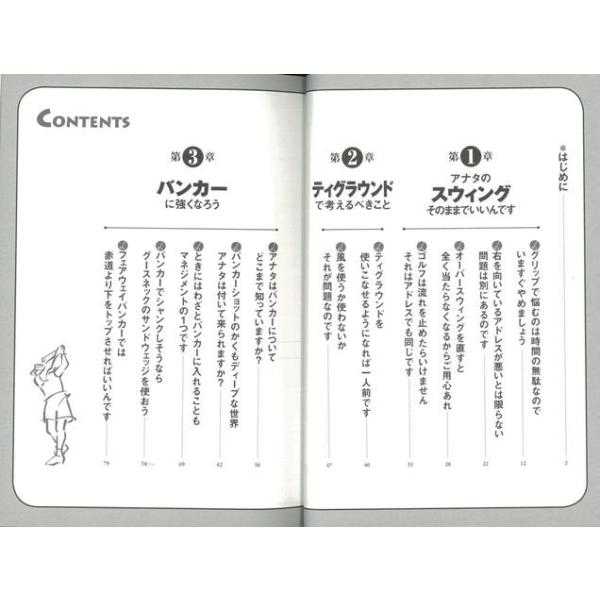 CONTENTS
*はじめに 2
第1章
アナタの
スウィング
そのままでいいんです
グリップで悩むのは時間の無駄なので
いますぐやめましょう 12
右を向いているアドレスが悪いとは限らない
問題は別にあるのです 22
オーバースウィングを直すと
全く当たらなくなるからご用心あれ 28
ゴルフは流れを止めたらいけません
それはアドレスでも同じです 33
第2章
ティグラウンド
で考えるべきこと
ティグラウンドを
使いこなせるようになれば一人前です
風を使うか使わないか
それが問題なのです 47
第3章
バンカー
に強くなろう
アナタはバンカーについて
どこまで知っていますか? 56
バンカーショットのかくもディープな世界
アナタは付いて来られますか? 62
ときにはわざとバンカーに入れることも
マネジメントの1つです 69
バンカーでシャンクしそうなら
グースネックのサンドウェッジを使おう 74
フェアウェイバンカーでは
赤道より下をトップさせればいいんです 79